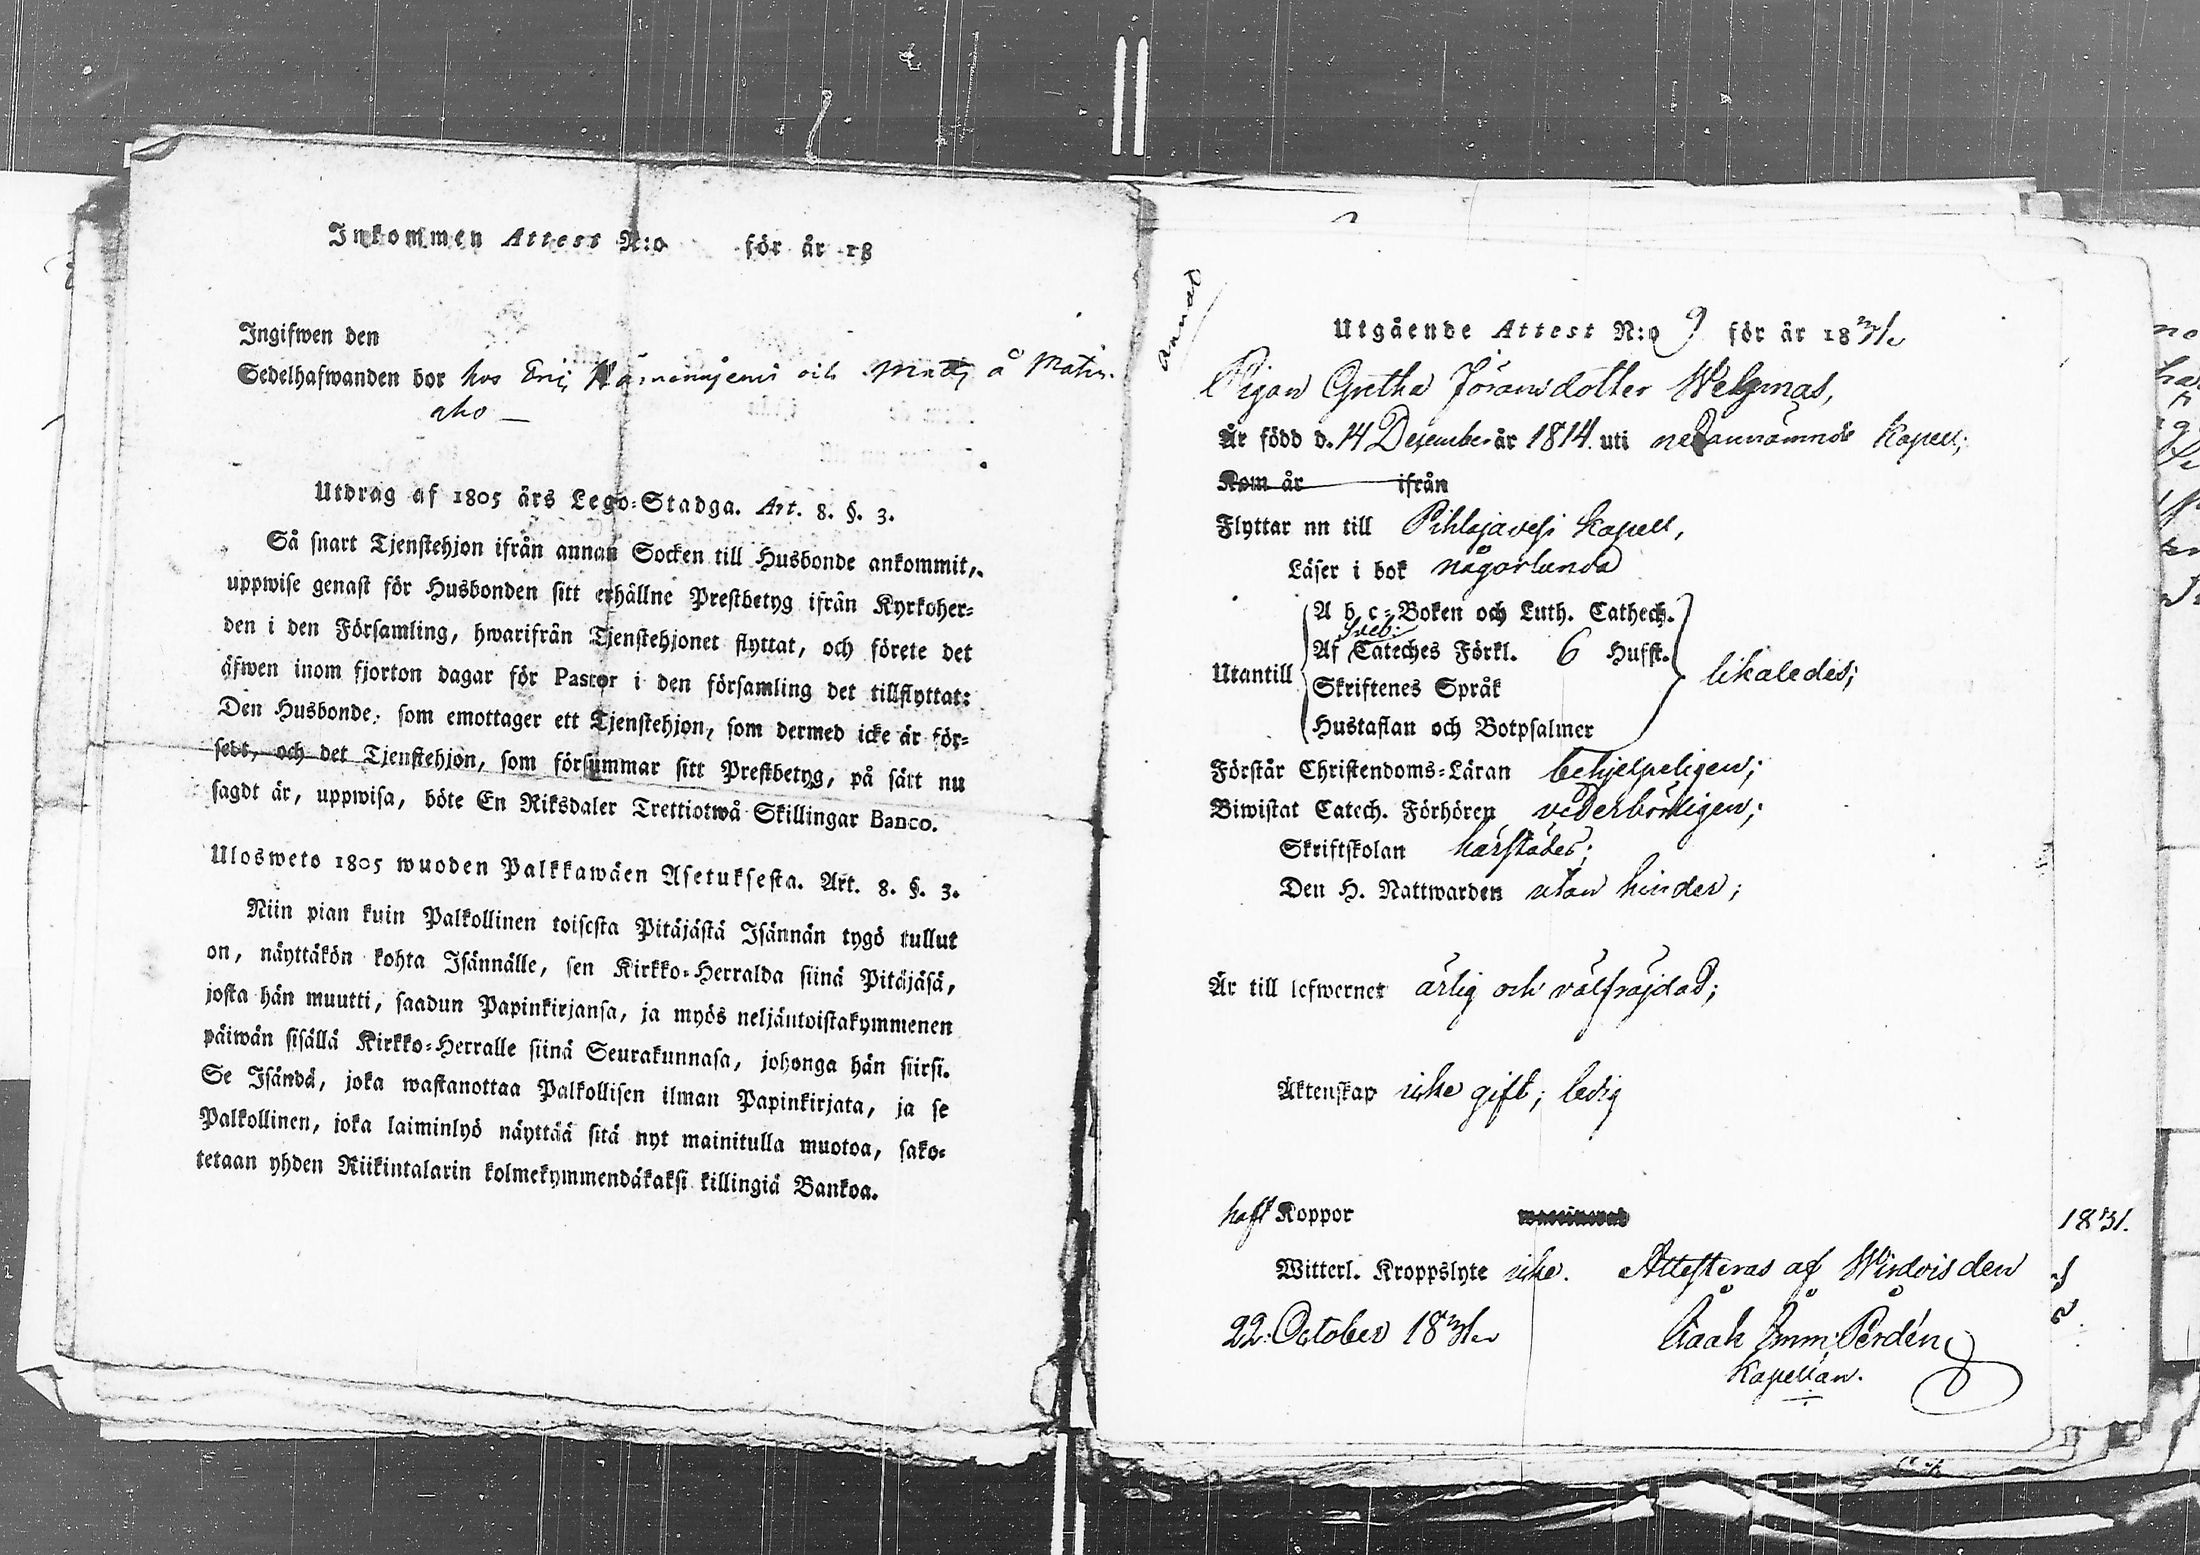 Inkommen Attest N:o för år 18
Ingifwen den
Sedelhafwanden bor hos Eric och Matts å Matin-
aho —
Utdrag af 1805 års Lego-Stadga. Art. 8. §. 3.
Så snart Tjenstehjon ifrån annan Socken till Husbonde ankommit,
uppwise genast för Husbonden sitt erhållne Prestbetyg ifrån Kyrkoher-
den i den Församling, hwarifrån Tjenstehjonet flyttat, och förete det
äfwen inom fjorton dagar för Pastor i den församling det tillflyttat:
Den Husbonde, som emottager ett Tjenstehjon, som dermed icke är för-
sedt, och det Tjenstehjon, som försummar sitt Prestbetyg, på sätt nu
sagdt är, uppwisa, böte En Riksdaler Trettiotwå Skillingar Banco.
Ulosweto 1805 wuoden Palkkawäen Asetuksesta. Art. 8. §. 3.
Niin pian kuin Palkollinen toisesta Pitäjästä Isännän tygö tullut
on, näyttäkön kohta Isännälle, sen Kirkko-Herralda siinä Pitäjäsä,
josta hän muutti, saadun Papinkirjansa, ja myös neljäntoistakymmenen
päiwän sisällä Kirkko-Herralle siinä Seurakunnasa, johonga hän siirsi.
Se Isändä, joka wastanottaa Palkollisen ilman Papinkirjata, ja se
Palkollinen, joka laiminlyö näyttää sitä nyt mainitulla muotoa, sako-
tetaan yhden Riikintalarin kolmekymmendäkaksi killingiä Bankoa.
Utgående Attest N:o 9 för år 1831
Pigan Gretha Jöransdotter
Är född d. 14 December år 1814 uti nedannämnde Kapell;
Kom år ifrån
Flyttar nu till Pihlajavesi Kapell,
Läser i bok någorlunda
A b c-Boken och Luth. Cathech.
Sveb:
Af Cateches Förkl. 6 Hufst.
Utantill likaledes;
Skriftenes Språk
Hustaflan och Botpsalmer
Förstår Christendoms-Läran behjelpeligen;
Biwistat Catech. Förhören vederbörligen;
Skriftskolan härstädes;
Den H. Nattwarden utan hinder;
Är till lefwernet ärlig och välfräjdad;
Äktenskap icke gift; ledig
haft Koppor
1831.
Witterl. Kroppslyte icke. Attesteras af Wirdois den
22. October 1831 Isaak Imm: Perdén
Kapellan.